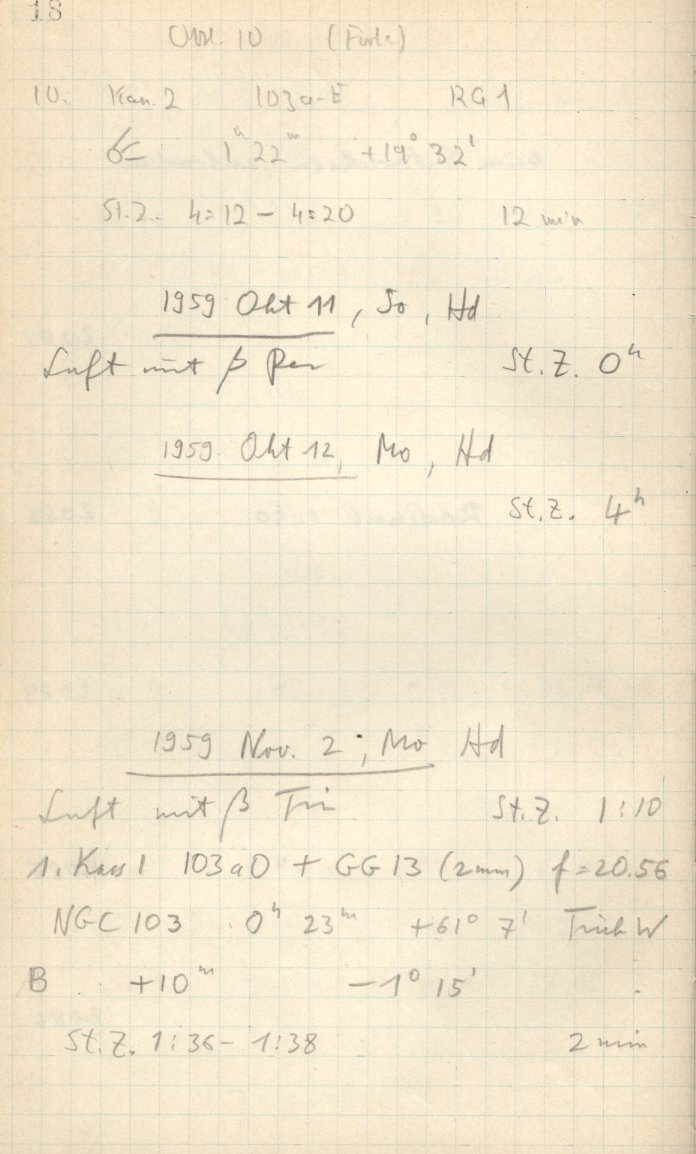 18
10
10. Kass. 2 103a-E RG1
1ʰ 22ᵐ +19° 32'
St.Z. 4:12 – 4:20 12 min
1959 Okt 11, So, Hd
Luft mit β Per St.Z. 0ʰ
1959 Okt 12, Mo, Hd
St.Z. 4ʰ
1959 Nov. 2, Mo Hd
Luft mit β Tri St.Z. 1:10
1. Kass 1 103aO + GG13 (2mm) f=20.56
NGC 103 0ʰ 23ᵐ +61° 7' W
B +10ᵐ –1° 15'
St.Z. 1:36 – 1:38 2 min